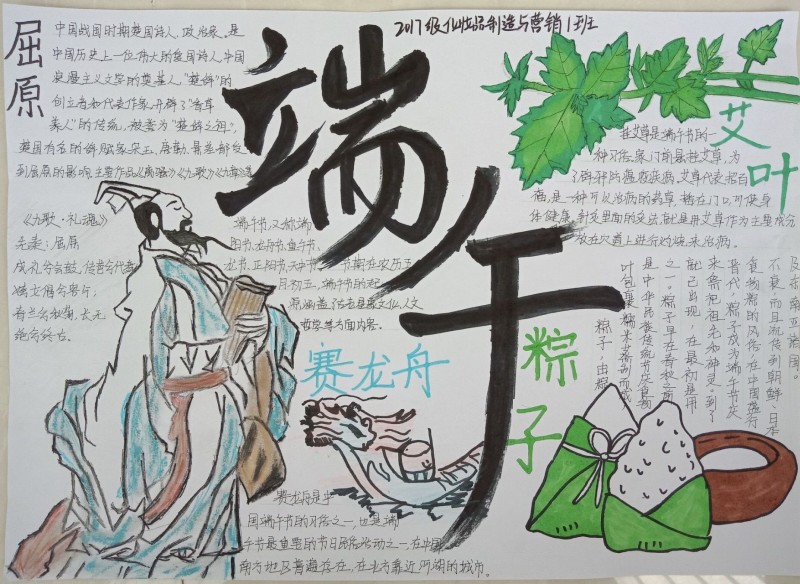 2017级化妆品制造与营销1班
屈原
中国战国时期楚国诗人、政治家，是
中国历史上一位伟大的爱国诗人，中国
浪漫主义文学的奠基人，“楚辞”的
创立者和代表作家，开辟了“香草
美人”的传统，被誉为“楚辞之祖”，
楚国有名的辞赋家宋玉、唐勒、景差都受
到屈原的影响。主要作品《离骚》《九歌》《九章》
《九歌·礼魂》
先秦：屈原
成礼兮会鼓，传芭兮代舞
姱女倡兮容与；
春兰兮秋菊，长无
绝兮终古。
端午
端午节，又称端
阳节、龙舟节、重午节、
龙节、正阳节、天中节
节期在农历五
月初五，端午节的起
源涵盖
文化、人文
哲学等方面内容。
艾叶
挂艾草是端午节的一
种习俗，家门前悬挂艾草，为
艾草代表招百
福，是一种可以治病的药草，插在门口，可使身
体健康。针灸里面的灸法，就是用艾草作为主要成分
放在穴道上进行灼烧来治病。
赛龙舟
赛龙舟是中
国端午节的习俗之一，也是端
午节最重要的节日民俗活动之一，在中国
南方地区普遍存在，在北方靠近河湖的城市。
粽子
粽子，由粽
叶包裹糯米蒸制而成
是中华民族传统节庆食物
之一。粽子早在春秋之前
就已出现，在最初是用
来祭祀祖先和神灵。到了
晋代，粽子成为端午节庆
食物。
粽的风俗，在中国盛行
不衰，而且流传到朝鲜、日本
及东南亚诸国。